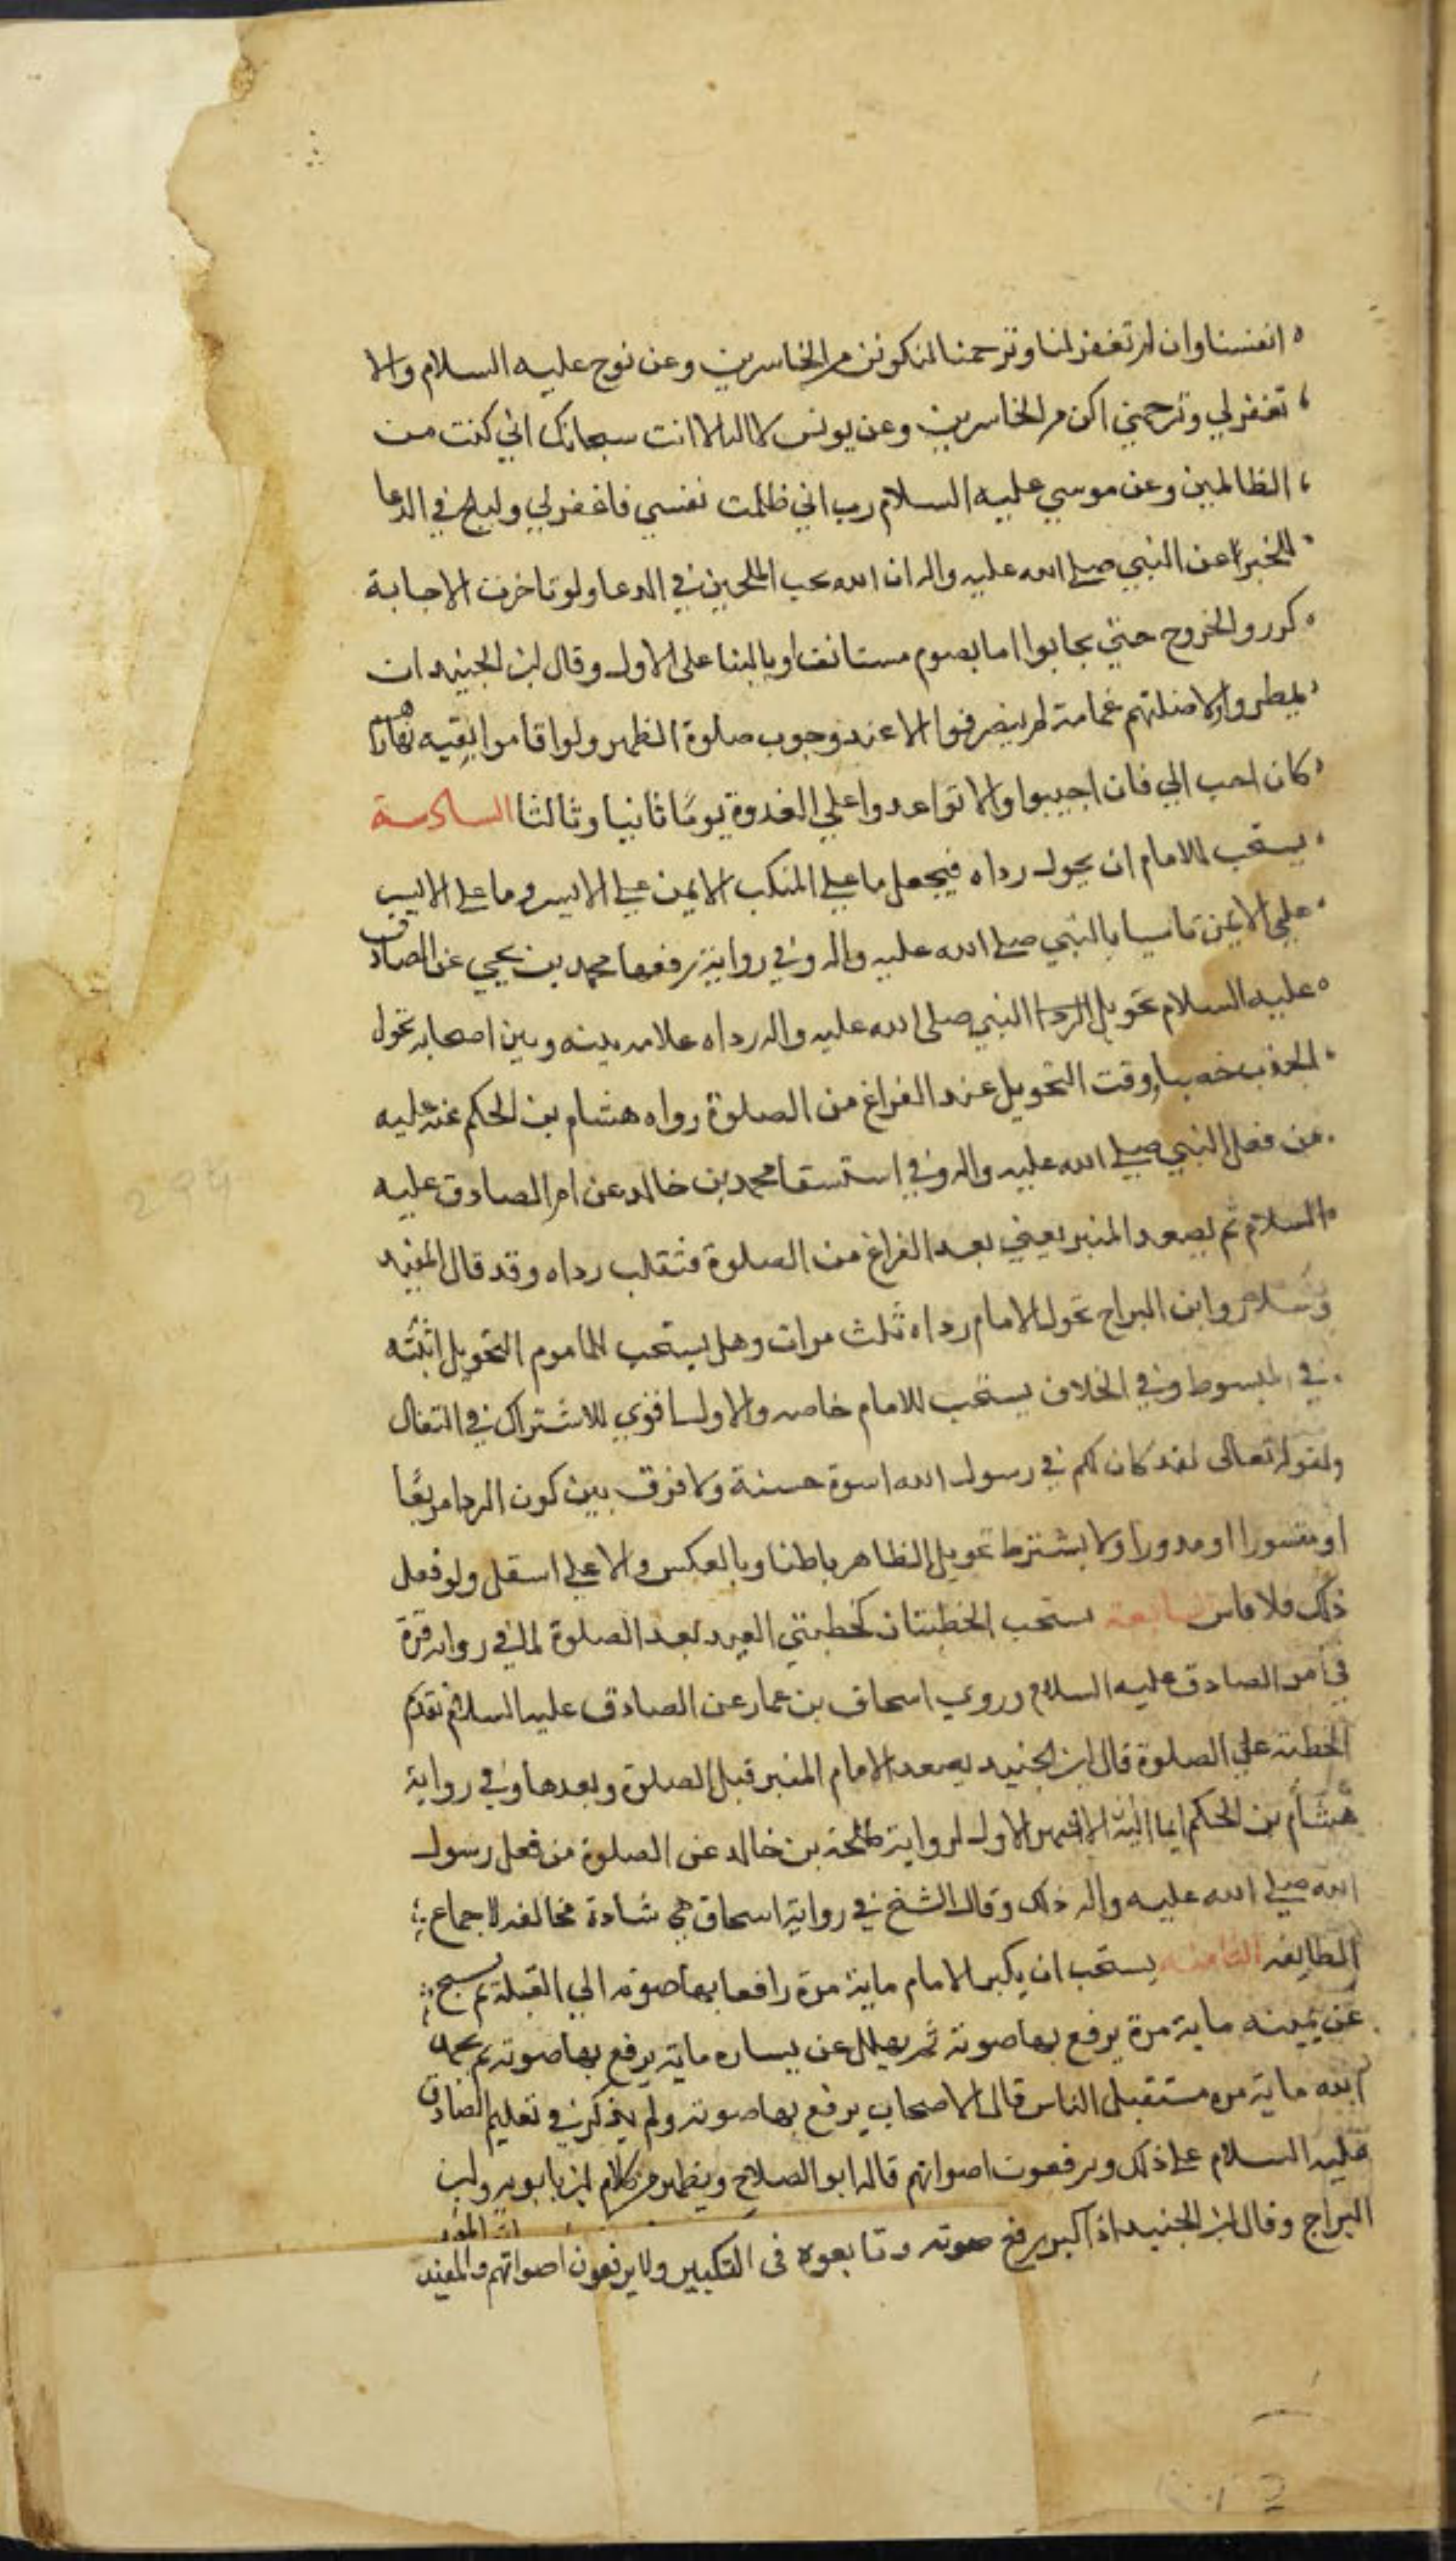 انفسنا وان لم تغفر لنا وترحمنا لنكونن من الخاسرين وعن نوح عليه السلام والا
تغفر لي وترحمني اكن من الخاسرين وعن يونس لا اله الا انت سبحانك اني كنت من
الظالمين وعن موسي عليه السلام رب اني ظلمت نفسي فاغفر لي وليلح في الدعا
للخبر عن النبي صلي الله عليه واله ان الله يحب الملحين في الدعا ولو تاخرت الاجابة
كرروا الخروج حتي يجابوا اما بصوم مستانف او بالبنا علي الاول وقال ابن الجنيد ان
لم يمطروا ولا اضلتهم غمامة لم ينصرفوا الا عند وجوب صلوة الظهر ولو اقاموا بقيه نهارهم
كان احب الي فان اجيبوا والا تواعدوا علي الغدوة يومًا ثانيا وثالثا السادسة
يستحب للامام ان يحول رداه فيجعل ما علي المنكب الايمن علي الايسر وما علي الايسر
علي الايمن تاسيا بالنبي صلي الله عليه واله وفي رواية رفعها محمد بن يحيي عن الصادق
عليه السلام تحويل الردا النبي صلى الله عليه واله رداه علامه بينه وبين اصحابه تحول
الجدب خصبا وقت التحويل عند الفراغ من الصلوة رواه هشام بن الحكم عنه عليه
من فعل النبي صلي الله عليه واله وفي استسقا محمد بن خالد عن امر الصادق عليه
السلام ثم يصعد المنبر يعني بعد الفراغ من الصلوة فتقلب رداه وقد قال المفيد
وسلار وابن البراج تحول الامام رداه ثلث مرات وهل يستحب للماموم التحويل اثبته
في المبسوط وفي الخلاف يستحب للامام خاصه والاول اقوي للاشتراك في التفال
ولقوله تعالى لقد كان لكم في رسول الله اسوة حسنة ولا فرق بين كون الردا مربعًا
او مقسورا او مدورا ولا يشترط تحويل الظاهر باطنا وبالعكس والاعلي اسفل ولو فعل
ذلك فلا باس السابعة يستحب الخطبتان كخطبتي العيد بعد الصلوة لما في رواية مرة
في امر الصادق عليه السلام وروي اسحاق بن عمار عن الصادق عليه السلام تقدم
الخطبة علي الصلوة قال ابن الجنيد يصعد الامام المنبر قبل الصلوة وبعدها وفي رواية
هشام بن الحكم ايما اليه الاشهر الاول لرواية طلحة بن خالد عن الصلوة من فعل رسول
الله صلي الله عليه واله ذلك وقال الشخ في رواية اسحاق هي شادة مخالفه لاجماع
الطايفه الثامنه يستحب ان يكبر الامام ماية مرة رافعا بها صوته الي القبلة ثم يسبح
عن يمينه ماية مرة يرفع بها صوته ثم يهلل عن يساره ماية يرفع بها صوته ثم يحمد
الله ماية مره مستقبل الناس قال الاصحاب يرفع بها صوته ولم يذكر في تعليم الصادق
عليه السلام على ذلك ويرفعون اصواتهم قاله ابو الصلاح ويظهر من كلام ابن بابويه وابن
البراج وقال ابن الجنيد اذا كبر يرفع صوته وتابعوه في التكبير ولا يرفعون اصواتهم والمفيد